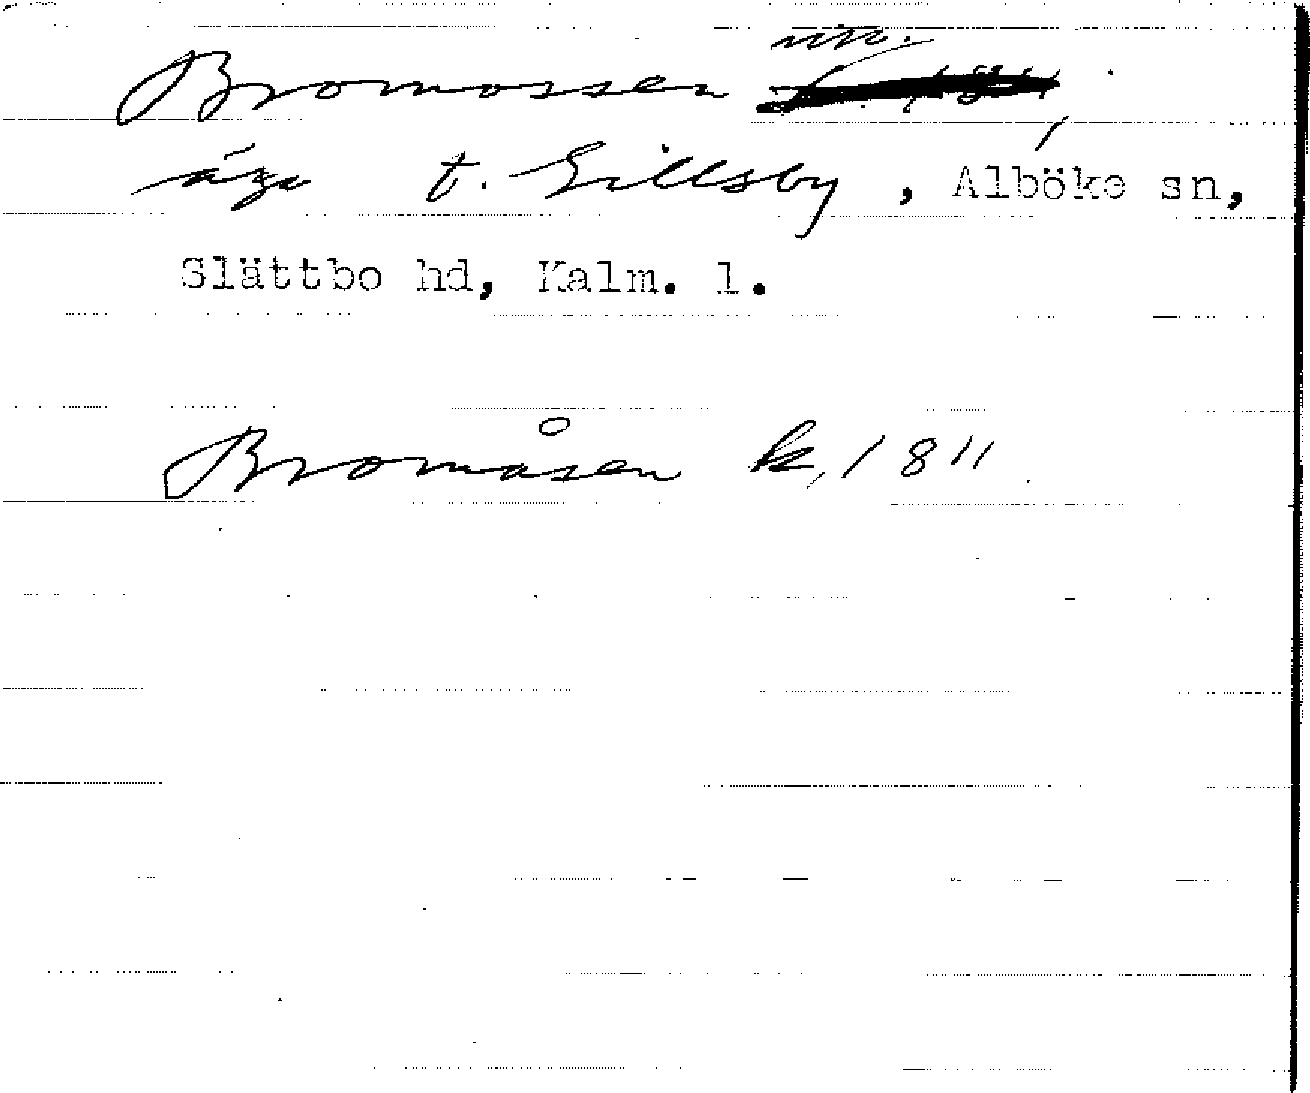 Bromossen utv.
äga t. Gillsby, Alböke sn,
Slättbo hd, Kalm. l.
Bromåsen k, 1811